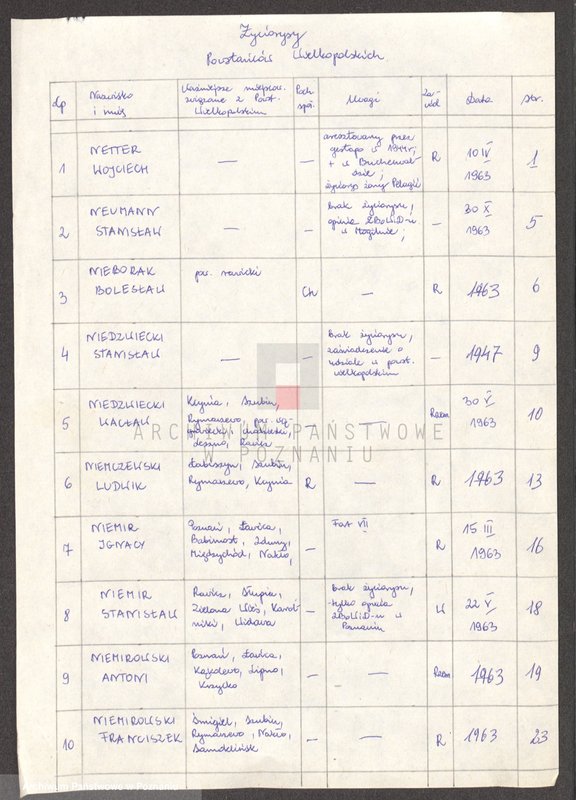 Życiorysy
Powstańców Wielkopolskich
Lp | Nazwisko i imię | Ważniejsze miejscow. związane z Powst. Wielkopolskim | Poch. społ. | Uwagi | Zawód | Data | str.
1 | NETTER WOJCIECH | — | — | aresztowany przez gestapo w 1944r; + w Buchenwaldzie; życiorys żony Pelagii | R | 10 IV 1963 | 1
2 | NEUMANN STANISŁAW | — | — | brak życiorysu, opinia ZBoWiD-u w Mogilnie; | — | 30 X 1963 | 5
3 | NIEBORAK BOLESŁAW | pow. rawicki | Ch | — | R | 1963 | 6
4 | NIEDZWIECKI STANISŁAW | — | — | brak życiorysu, zaświadczenie o udziale w powst. wielkopolskim | — | 1947 | 9
5 | NIEDZWIECKI WACŁAW | Kcynia, Szubin, Rynarzewo, pow. wągrowiecki i chodzieski, Leszno, Rawicz | — | — | Rzem | 30 V 1963 | 10
6 | NIEMCZEWSKI LUDWIK | Łabiszyn, Szubin, Rynarzewo, Kcynia | R | — | R | 1963 | 13
7 | NIEMIR IGNACY | Poznań, Ławica, Babimost, Zduny, Międzychód, Nakło, | — | Fort VII | R | 15 III 1963 | 16
8 | NIEMIR STANISŁAW | Rawicz, Słupia, Zielona Wieś, | — | brak życiorysu, tylko opinia ZBoWiD-u w Poznaniu | U | 22 V 1963 | 18
9 | NIEMIROWSKI ANTONI | Poznań, Ławica, Kąkolewo, Lipno, | — | — | Rzem | 1963 | 19
10 | NIEMIROWSKI FRANCISZEK | Śmigiel, Szubin, Rynarzewo, Nakło, Samoklęsk | — | — | R | 1963 | 23
ARCHIWUM PAŃSTWOWE
W POZNANIU